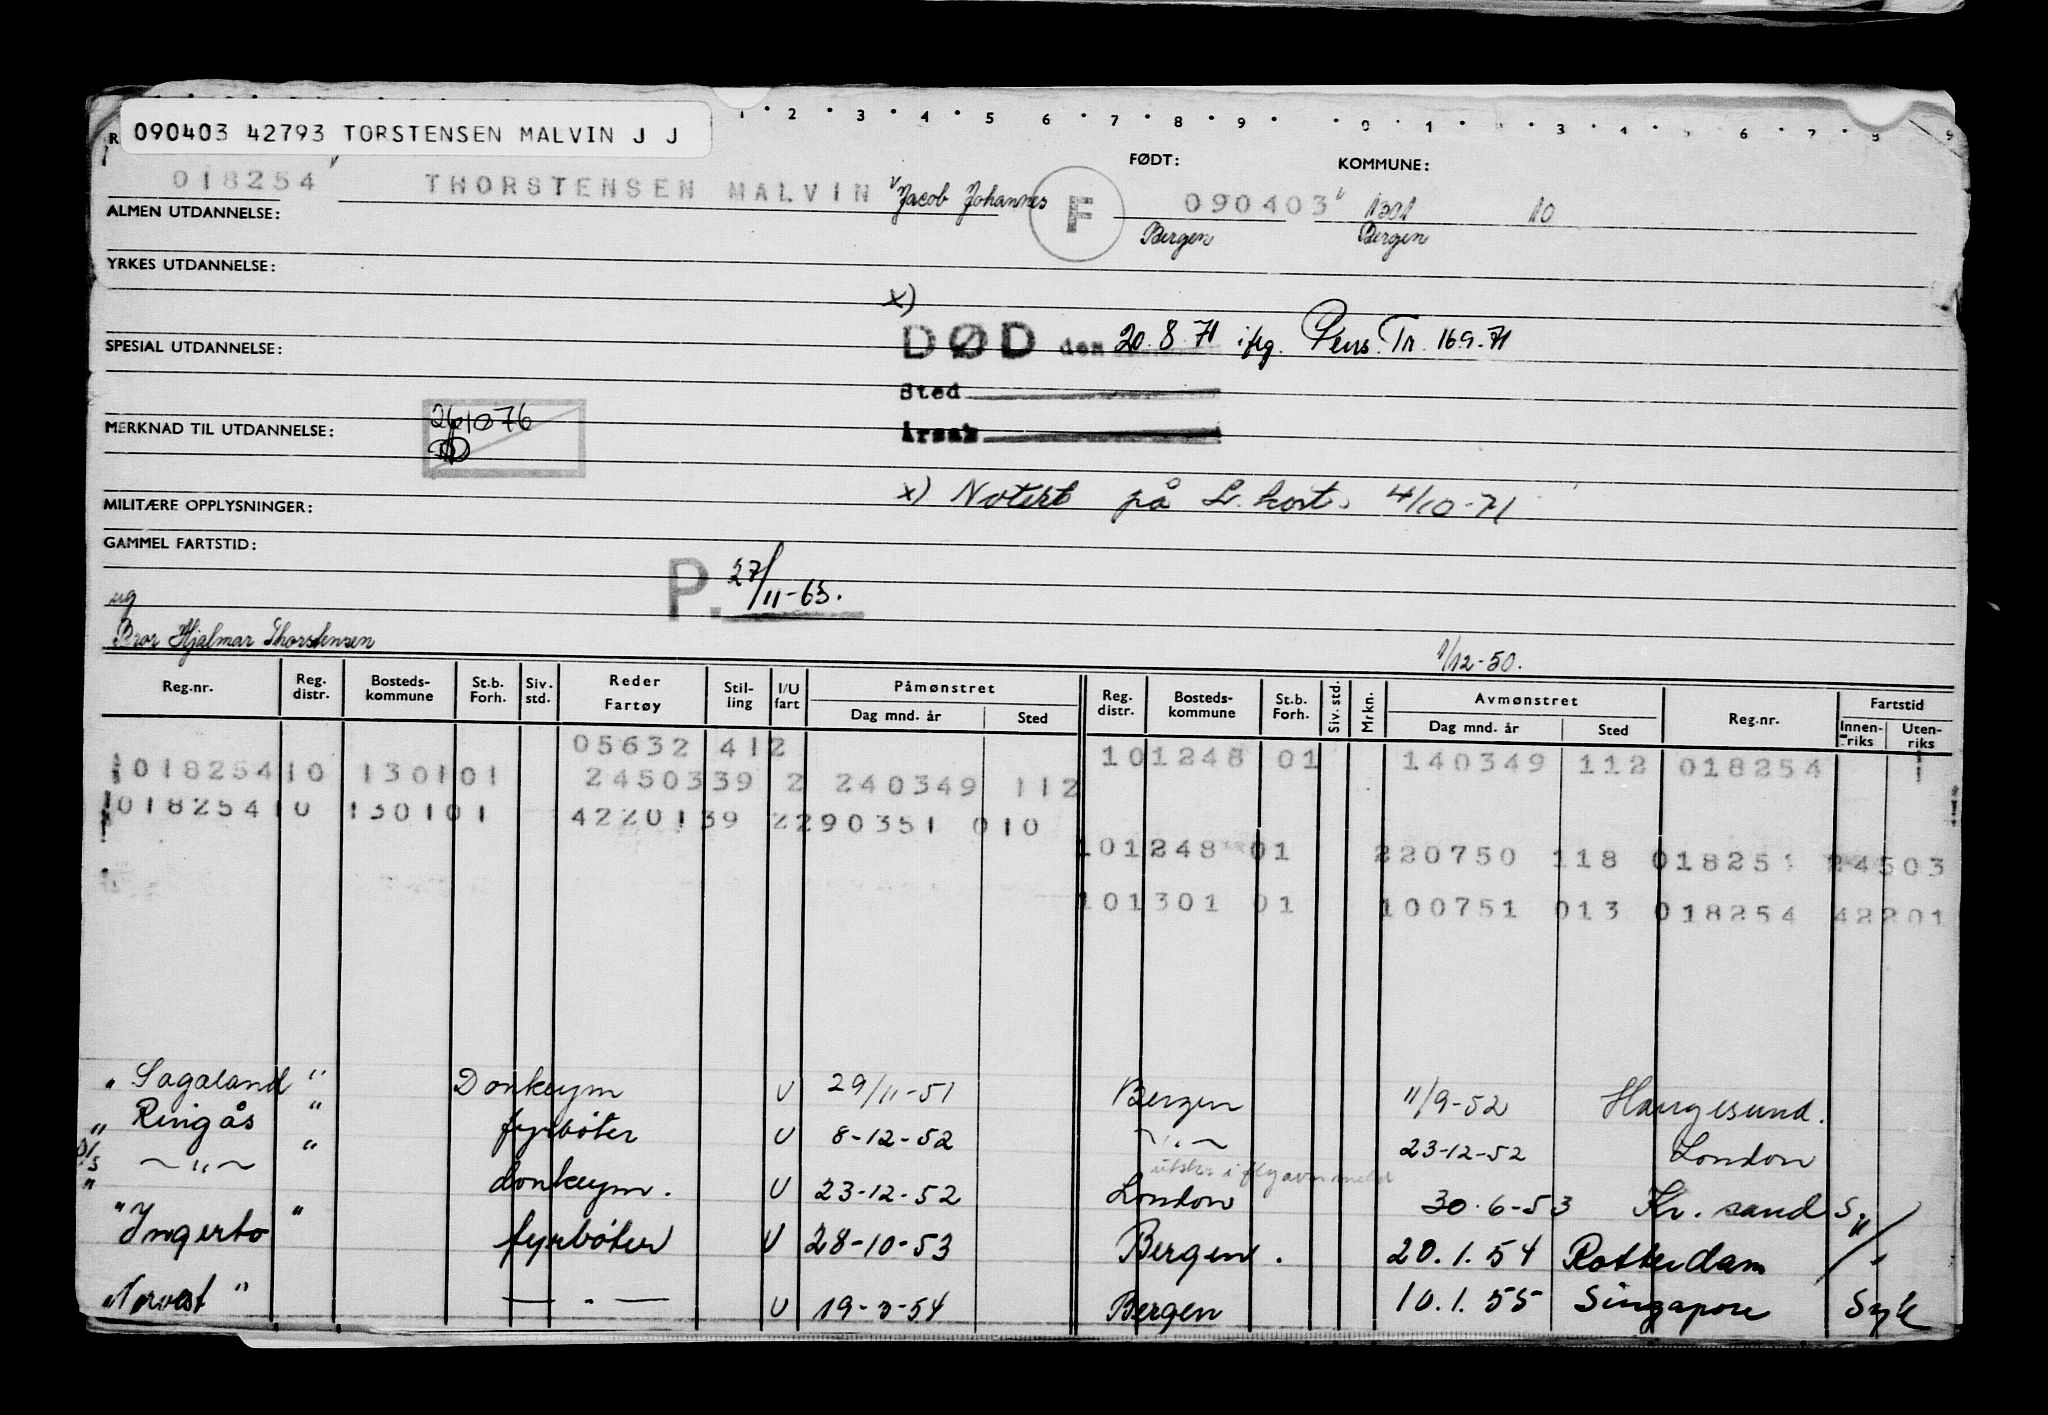 1 2 3 4 5 6 7 8 9 0 1 3 4 6 7 8 9
R
090403 42793 TORSTENSEN MALVIN J J
FØDT: KOMMUNE:
018254 THORSTENSEN MALVIN Jacob Johannes F 090403 1301 10
ALMEN UTDANNELSE:
Bergen Bergen
YRKES UTDANNELSE:
x)
DØD den 20.8.71 iflg. Pens.Tr. 169-71
SPESIAL UTDANNELSE:
Sted
MERKNAD TIL UTDANNELSE: 261076
Årsak
x) Notert på L.kort. 4/10-71
MILITÆRE OPPLYSNINGER:
GAMMEL FARTSTID:
P. 27/11-63.
ug
Bror Hjalmar Thorstensen
1/12-50.
Reg.nr. Reg. distr. Bosteds-kommune St.b. Forh. Siv. std. Reder Fartøy Stil-ling I/U fart Påmønstret Dag mnd. år Sted Reg. distr. Bosteds-kommune St.b. Forh. Siv. std. Mrkn. Avmønstret Dag mnd. år Sted Reg.nr. Fartstid Innen-riks Uten-riks
05632 412 101248 01 140349 112 018254
018254 10 1301 01 24503 39 2 240349 112
018254 10 1301 01 42201 39 2 290351 010
101248 01 220750 118 01825 24503
101301 01 100751 013 018254 42201
" Sagaland " Donkeym U 29/11-51 Bergen 11/9-52 Haugesund.
" Ringås " fyrbøter U 8-12-52 ~ " ~ 23-12-52 London
D/S ~ " ~ " donkeym. U 23-12-52 London 30.6-53 Kr. sand S.
" Ingerto " fyrbøter U 28-10-53 Bergen. 20.1.54 Rotterdam
" Norvest " — " — U 19-3-54 Bergen 10.1.55 Singapore Syk